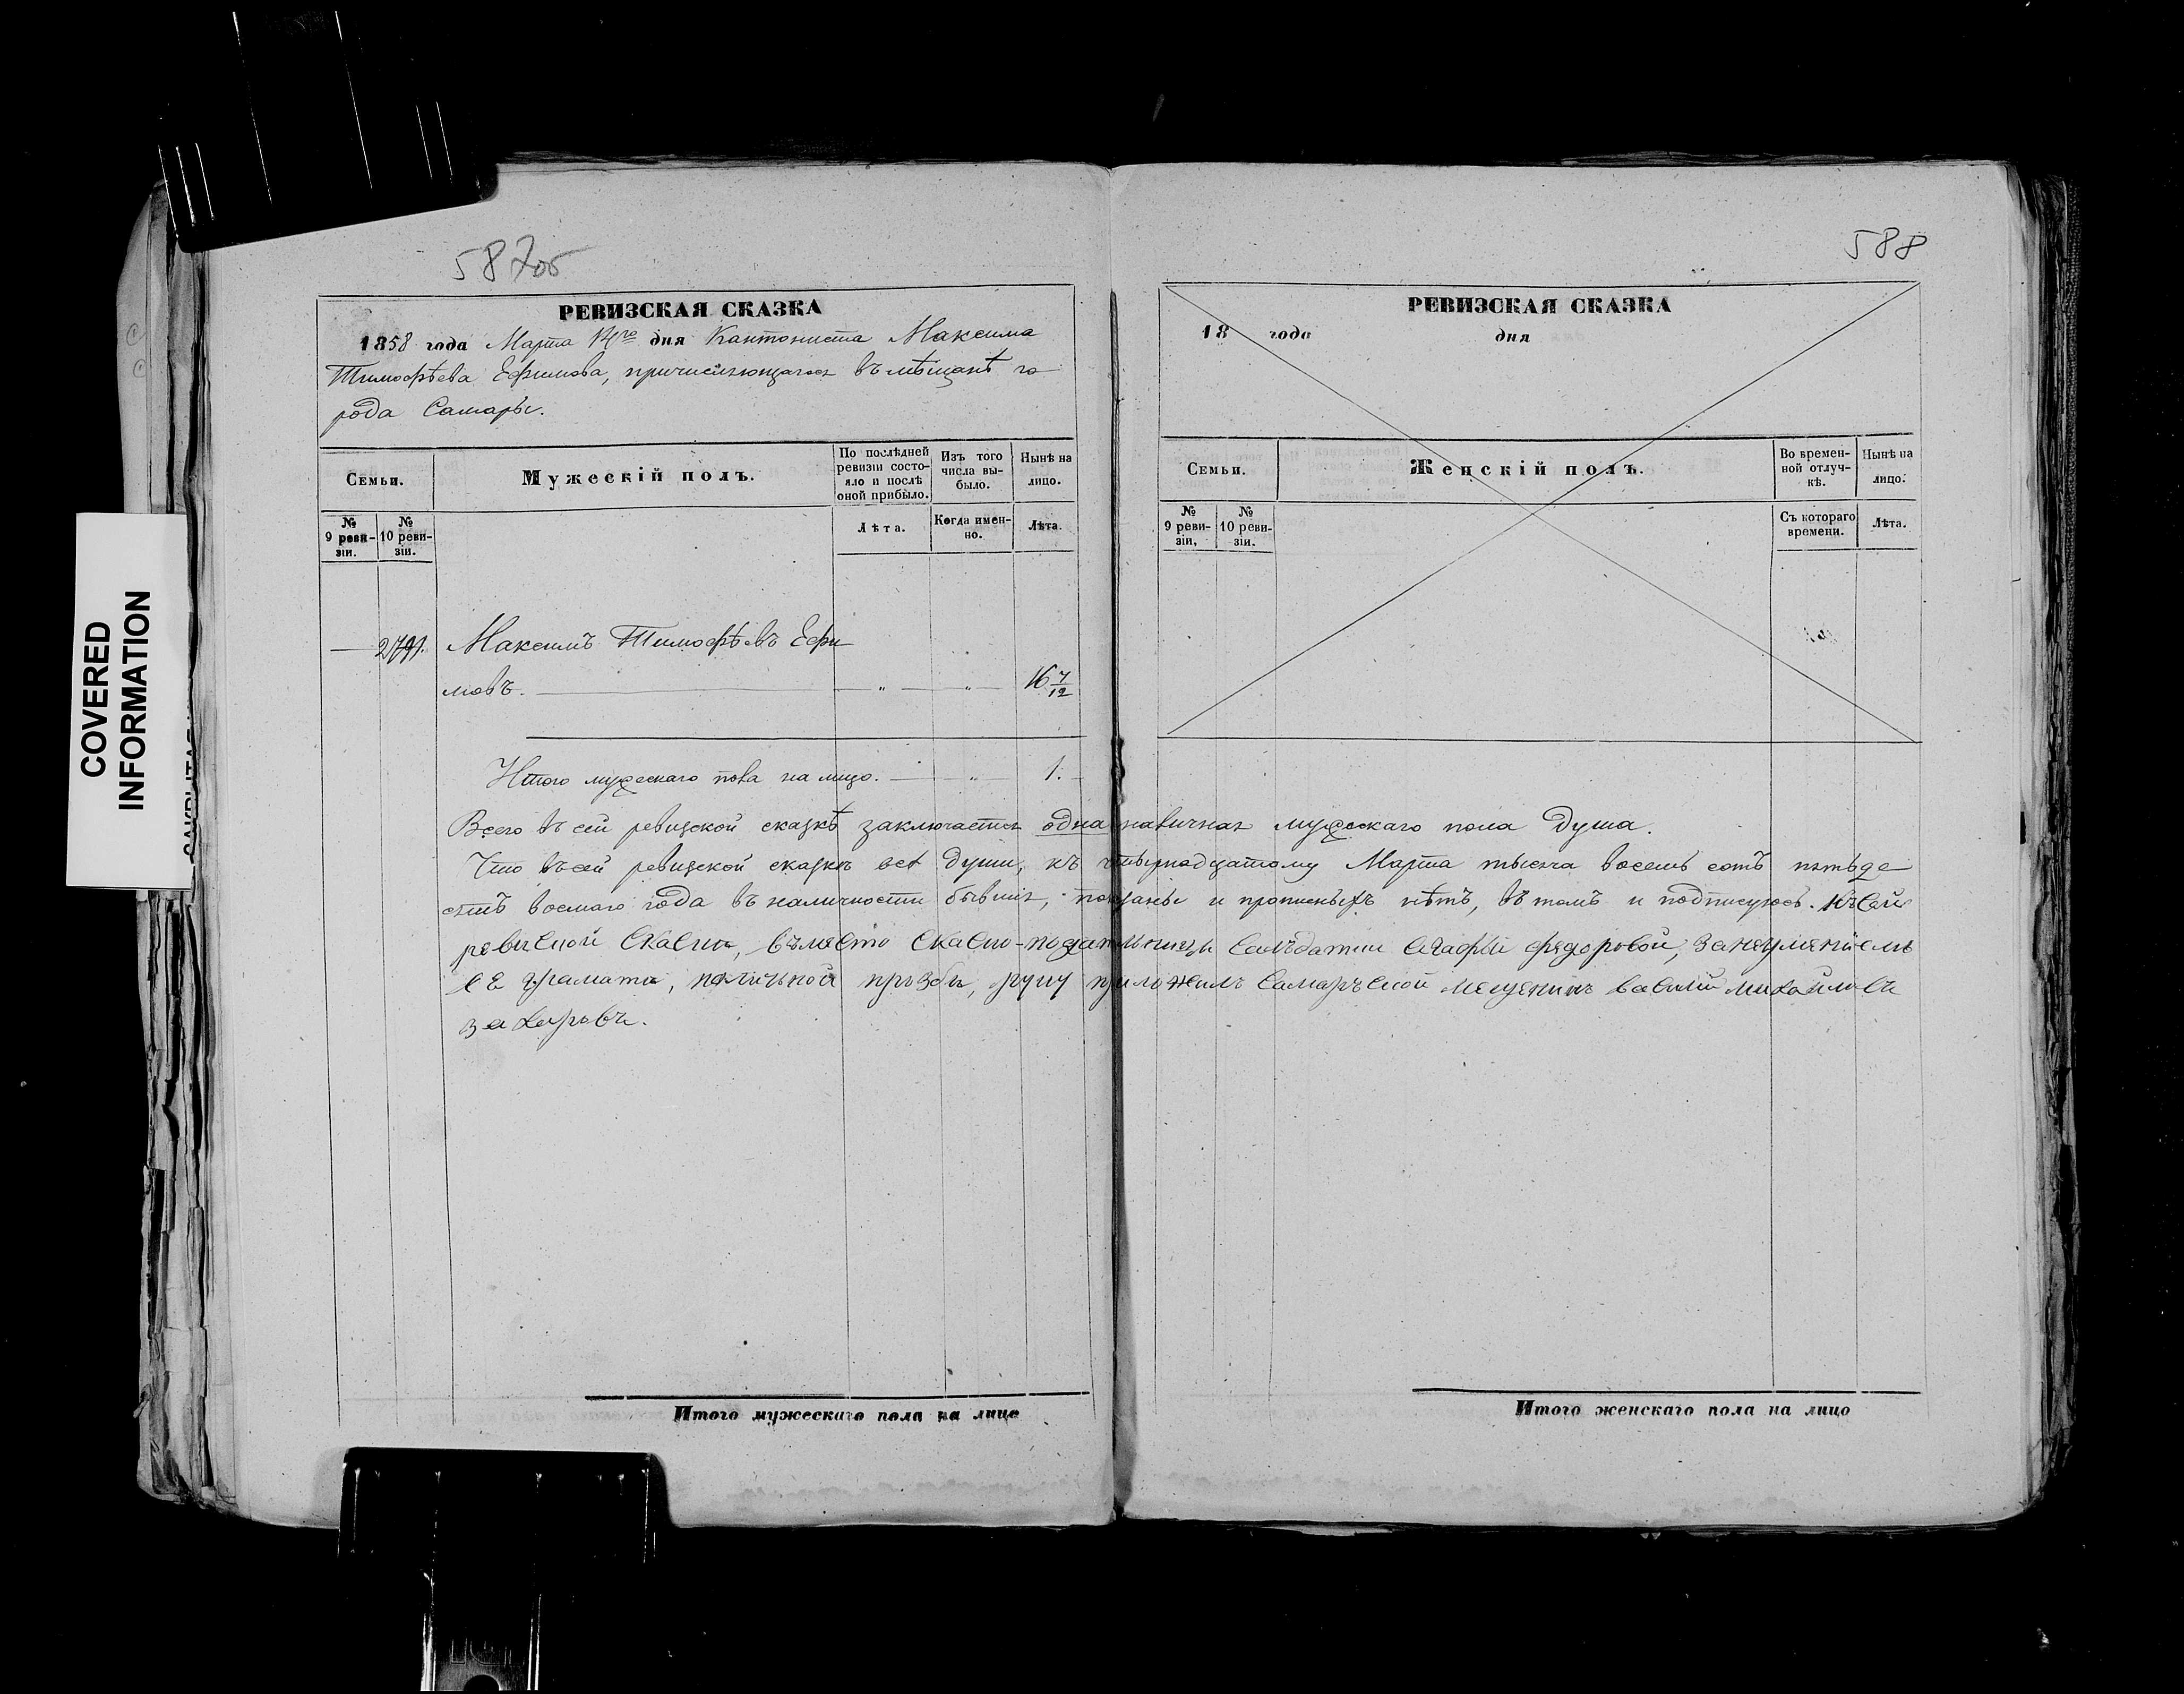 587об
588
РЕВИЗСКАЯ СКАЗКА
1858 года Марта 14го дня Кантониста Максима
Тимофѣева Ефимова, причисляющагося въ мѣщанѣ го
рода Самары.
Семьи.
Мужескій полъ.
По послѣдней ревизіи состояло и послѣ оной прибыло.
Изъ того числа выбыло.
Нынѣ на лицо.
№ 9 ревизіи.
№ 10 ревизіи.
Лѣта.
Когда именно.
Лѣта.
Максимъ Тимофѣевъ Ефи
мовъ. — „ — „ — 16 7/12
Итого мужескаго пола на лицо. — „ — 1.
РЕВИЗСКАЯ СКАЗКА
18 года дня
Семьи.
Женскій полъ.
Во временной отлучкѣ.
Нынѣ на лицо.
№ 9 ревизіи.
№ 10 ревизіи.
Съ котораго времени.
Лѣта.
Всего въ сей ревизской сказкѣ заключается одна наличная мужескаго пола душа.
Что въ сей ревизской сказкѣ всѣ души, къ четырнадцатому Марта тысяча восемь сотъ пятьде
сятъ восмаго года въ наличности бывшія, показаны и прописныхъ нѣтъ, въ томъ и подписуюсь. Къ сей
ревиской скаски, въместо скаско-подательницы салъдатки Агафьи Федоровой, за неумениемъ
ее грамати, поличьной прозби, руку приложилъ Самаръской мещенинъ Василий Михайловъ
Захаровъ.
Итого мужескаго пола на лицо
Итого женскаго пола на лицо
COVERED
INFORMATION